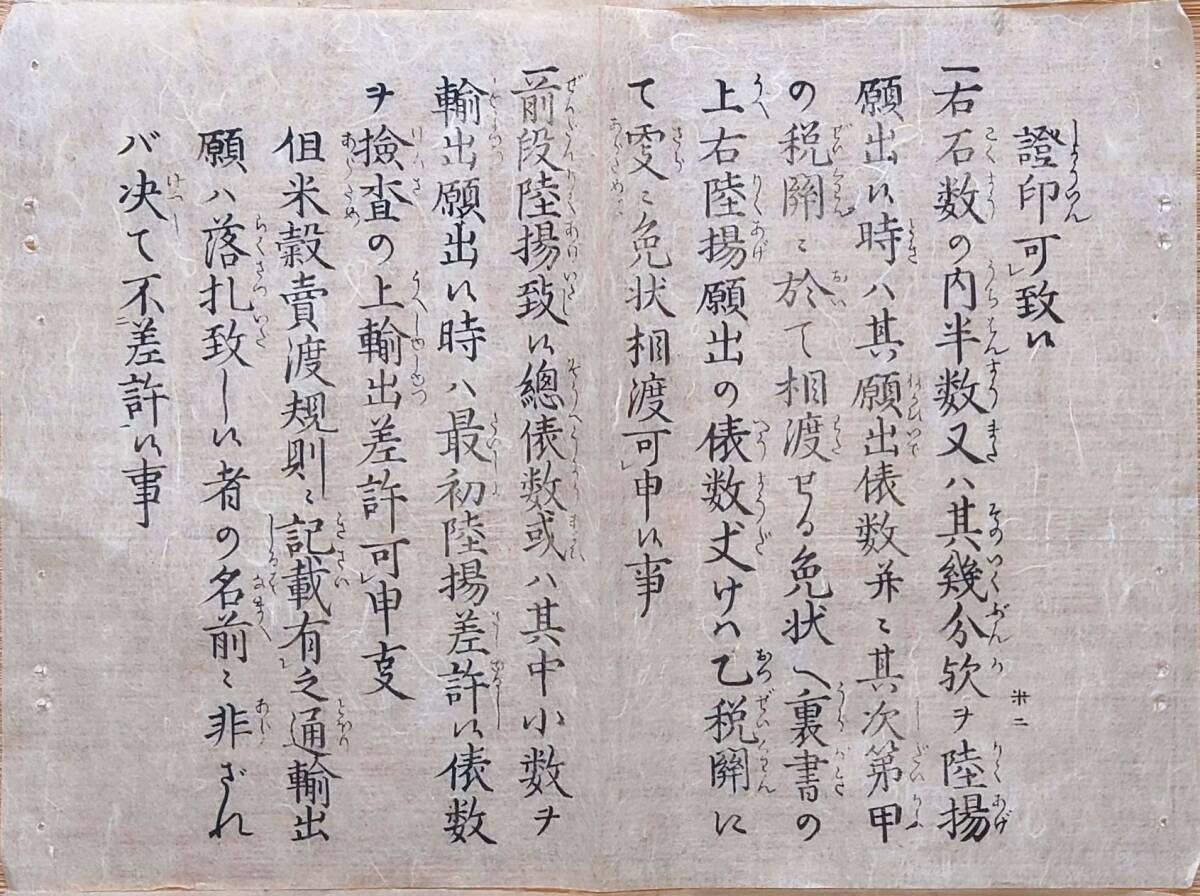 證印可致候
一右石数の内半数又ハ其幾分欤ヲ陸揚
願出候時ハ其願出俵数并ニ其次第甲
の税關ニ於て相渡せる免状へ裏書の
上右陸揚願出の俵数丈けハ乙税關に
て更ニ免状相渡可申候事
一前段陸揚致候總俵数或ハ其中小数ヲ
輸出願出候時ハ最初陸揚差許候俵数
ヲ撿査の上輸出差許可申支
但米穀賣渡規則ニ記載有之通輸出
願ハ落札致し候者の名前ニ非ざれ
バ决て不差許候事
米二